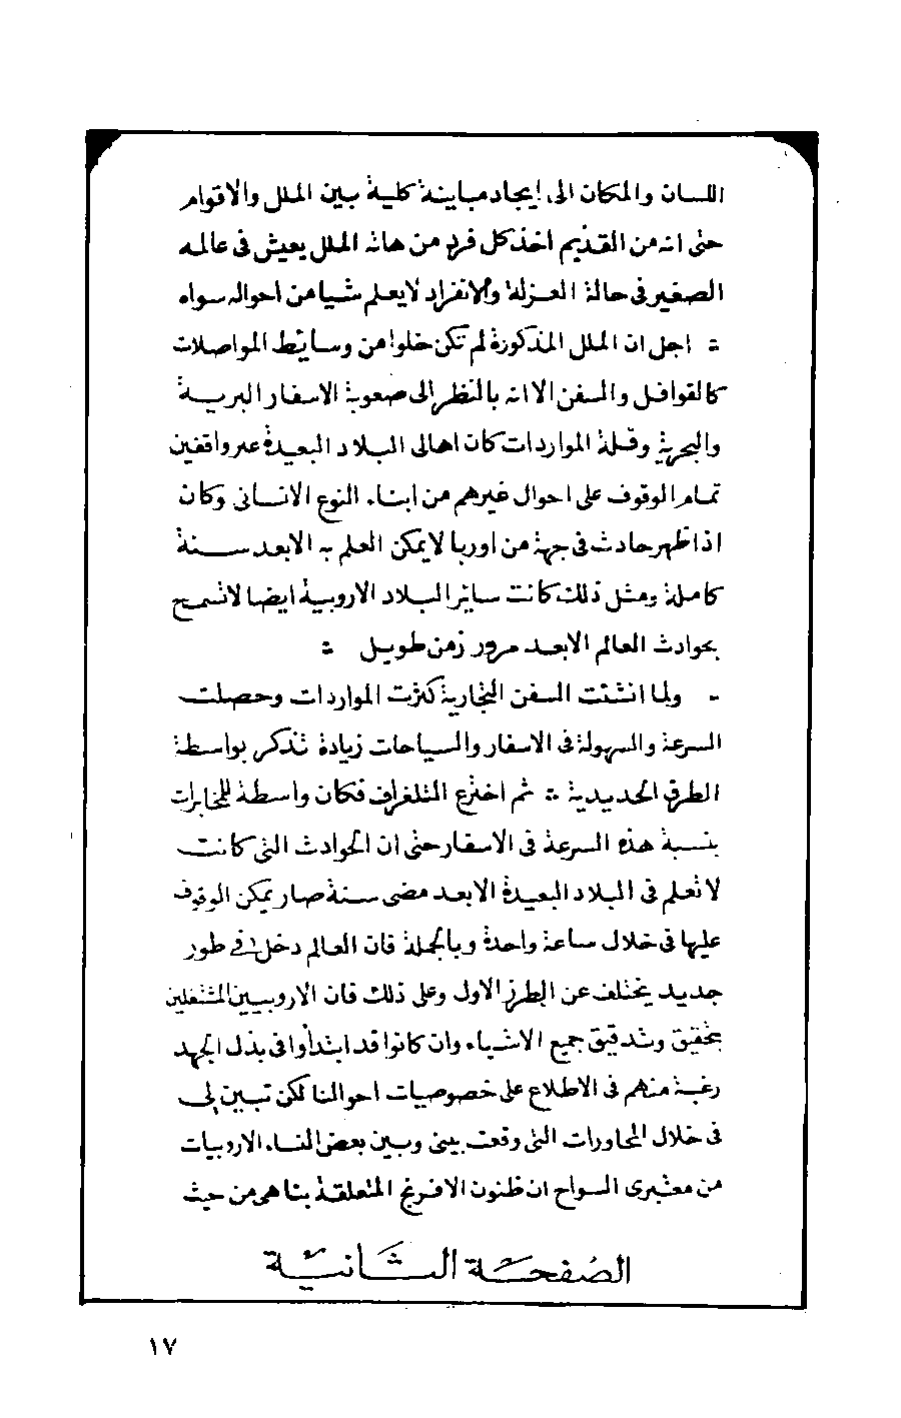 اللسان والمكان الى إيجاد مباينة كلية بين الملل والاقوام
حتى انه من القديم اخذ كل فرد من هاته الملل يعيش فى عالمه
الصغير فى حالة العزلة والانفراد لا يعلم شيا من احوال سواه
؞ اجل ان الملل المذكورة لم تكن خلوا من وسايط المواصلات
كالقوافل والسفن الا انه بالنظر الى صعوبة الاسفار البرية
والبحرية وقلة المواردات كان اهالى البلاد البعيدة غير واقفين
تمام الوقوف على احوال غيرهم من ابناء النوع الانسانى وكان
اذا ظهر حادث فى جهة من اوربا لا يمكن العلم به الا بعد سنة
كاملة ومثل ذلك كانت ساير البلاد الاروبية ايضا لا تسمح
بحوادث العالم الا بعد مرور زمن طويل ؞
- ولما انشئت السفن التجارية كثرت المواردات وحصلت
السرعة والسهولة فى الاسفار والسياحات زيادة تذكر بواسطة
الطرق الحديدية ؞ ثم اخترع التلغراف فكان واسطة للمخابرات
بنسبة هذه السرعة فى الاسفار حتى ان الحوادث التى كانت
لا تعلم فى البلاد البعيدة الا بعد مضى سنة صار يمكن الوقوف
عليها فى خلال ساعة واحدة وبالجملة فان العالم دخل فى طور
جديد يختلف عن الطرز الاول وعلى ذلك فان الاروبيين المشتغلين
بتحقيق وتدقيق جميع الاشياء وان كانوا قد ابتدأوا فى بذل الجهد
رغبة منهم فى الاطلاع على خصوصيات احوالنا لكن تبين لى
فى خلال المحاورات التى وقعت بينى وبين بعض النساء الاروبيات
من معتبرى السواح ان ظنون الافرنج المتعلقة بنا هى من حيث
الصفحة الثانية
١٧